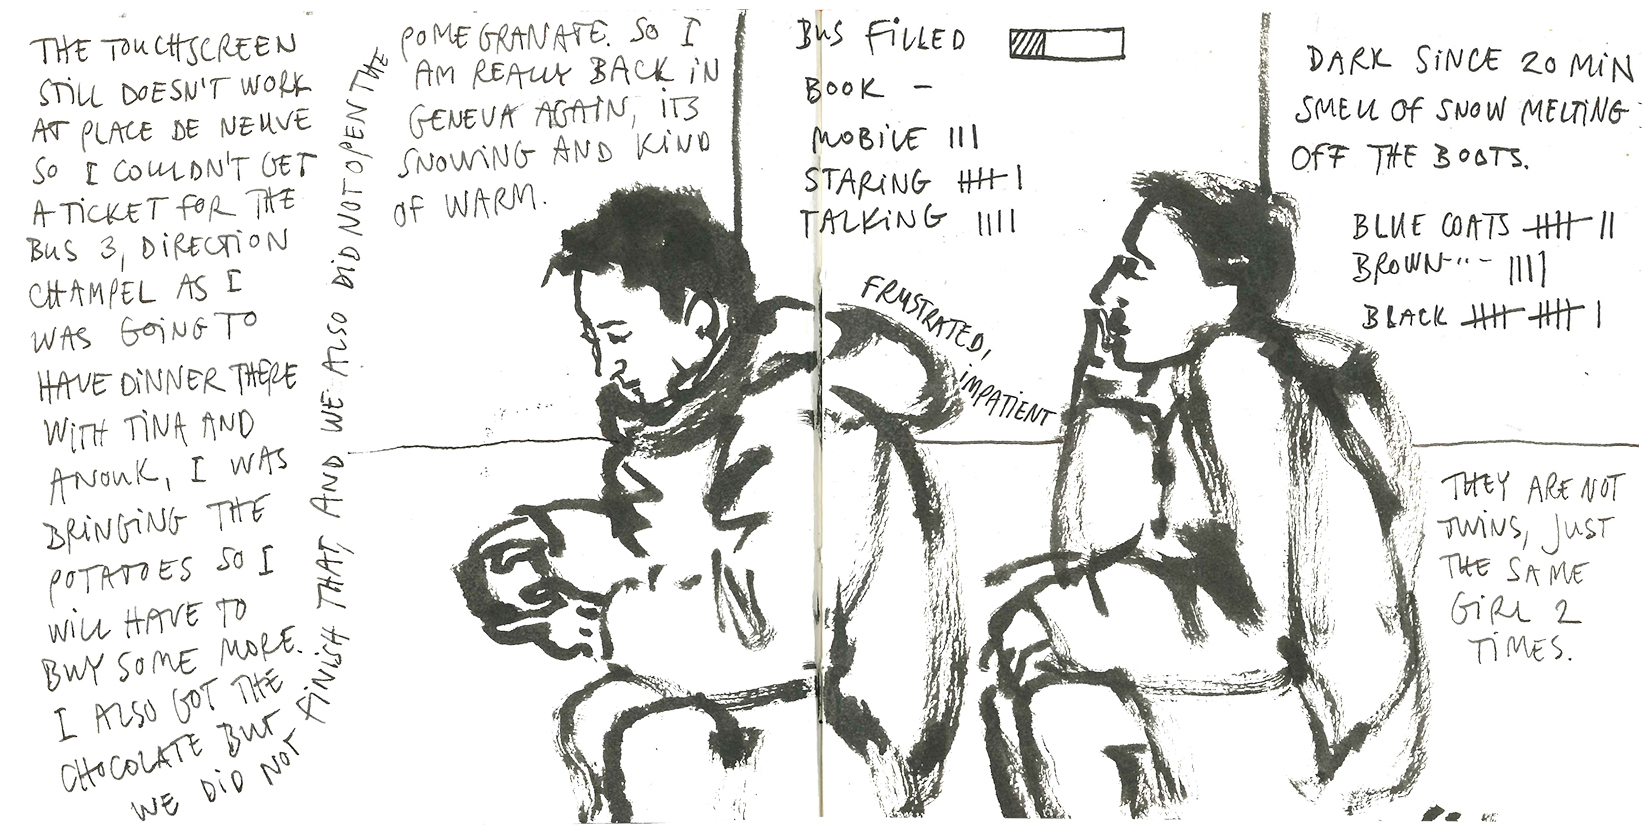 THE TOUCHSCREEN
STILL DOESN'T WORK
AT PLACE DE NEUVE
SO I COULDN'T GET
A TICKET FOR THE
BUS 3, DIRECTION
CHAMPEL AS I
WAS GOING TO
HAVE DINNER THERE
WITH TINA AND
ANOUK, I WAS
BRINGING THE
POTATOES SO I
WILL HAVE TO
BUY SOME MORE.
I ALSO GOT THE
CHOCOLATE BUT
WE DID NOT FINISH THAT, AND WE ALSO DID NOT OPEN THE
POMEGRANATE. SO I
AM REALLY BACK IN
GENEVA AGAIN, ITS
SNOWING AND KIND
OF WARM.
BUS FILLED
BOOK –
MOBILE |||
STARING |||| |
TALKING ||||
FRUSTRATED,
IMPATIENT
DARK SINCE 20 MIN
SMELL OF SNOW MELTING
OFF THE BOOTS.
BLUE COATS |||| ||
BROWN -"- ||||
BLACK |||| |||| |
THEY ARE NOT
TWINS, JUST
THE SAME
GIRL 2
TIMES.